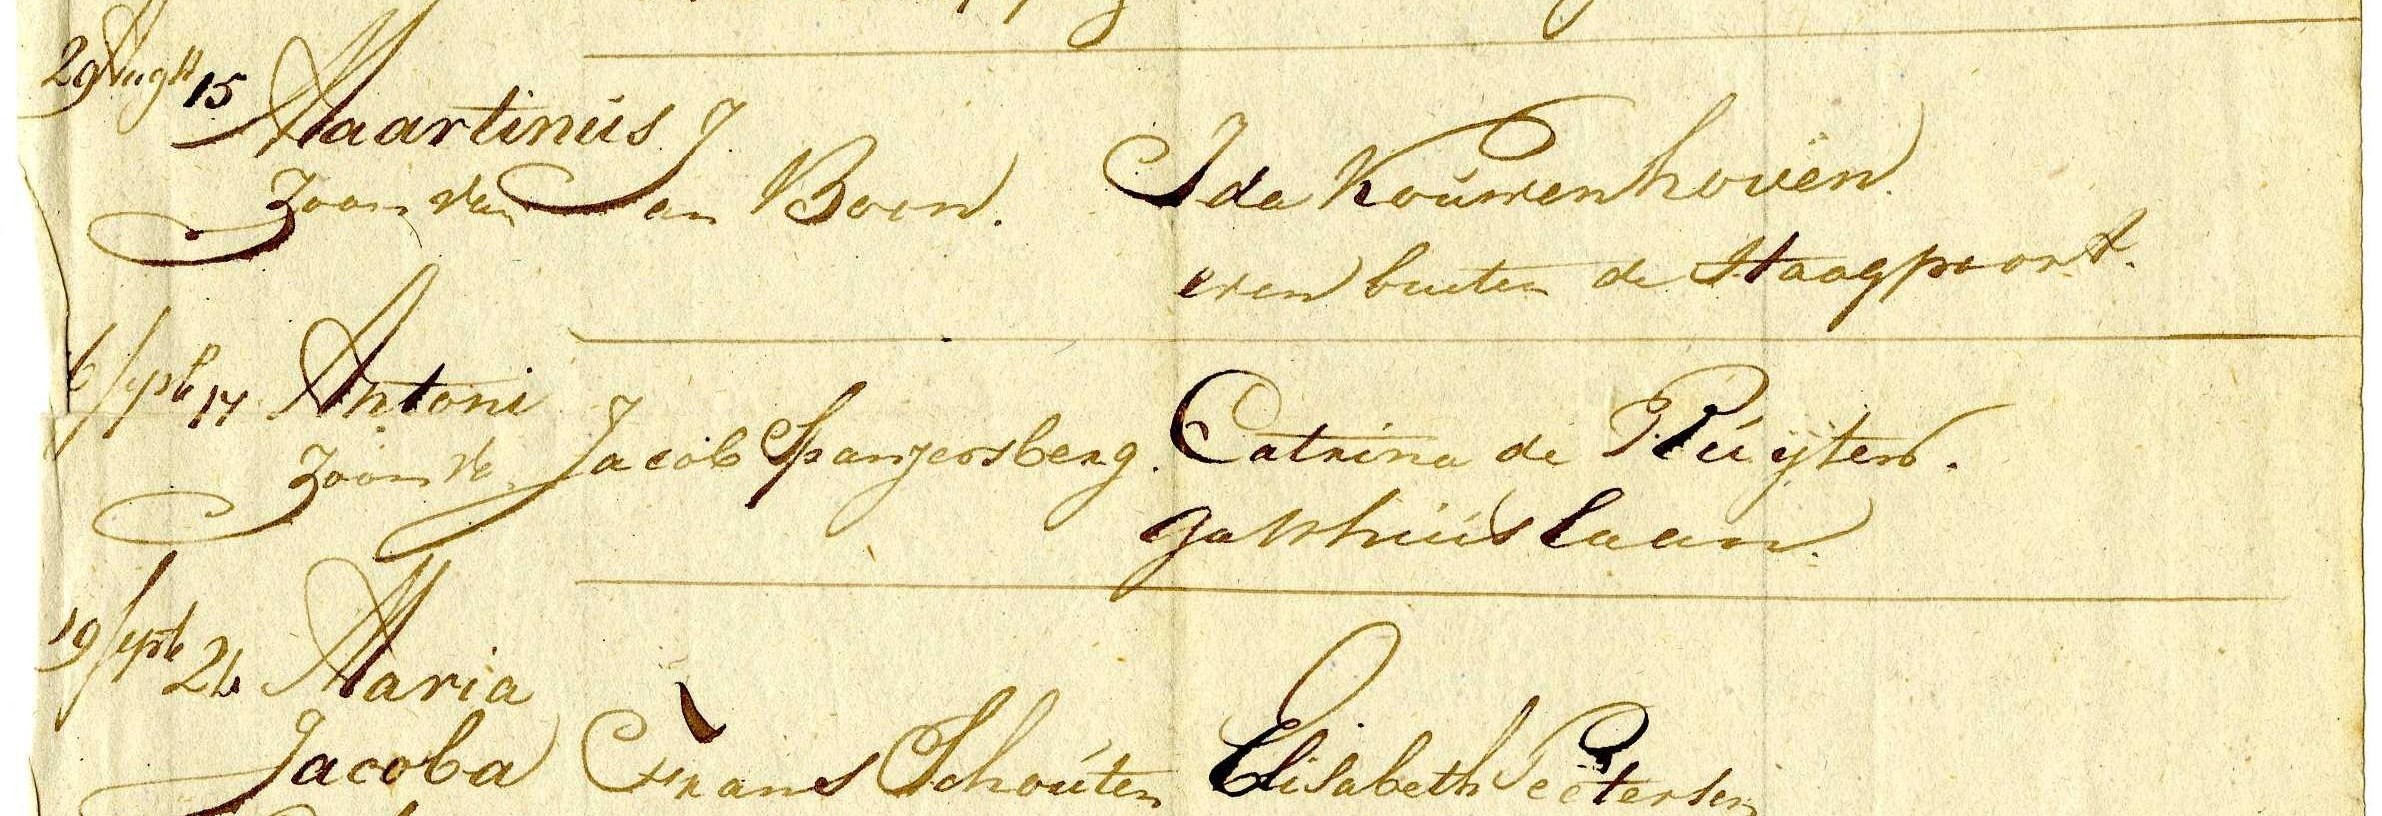 29 Augst 15 Maartinus
zoon van Jan Boon. Ida Kouwenhoven
even buiten de Haagpoort.
6 Septb 17 Antoni
zoon v. Jacob Spanjersberg. Catrina de Ruijter.
gasthuislaan.
19 Septb 21 Maria
Jacoba Frans Schouten Elisabeth Peetersen